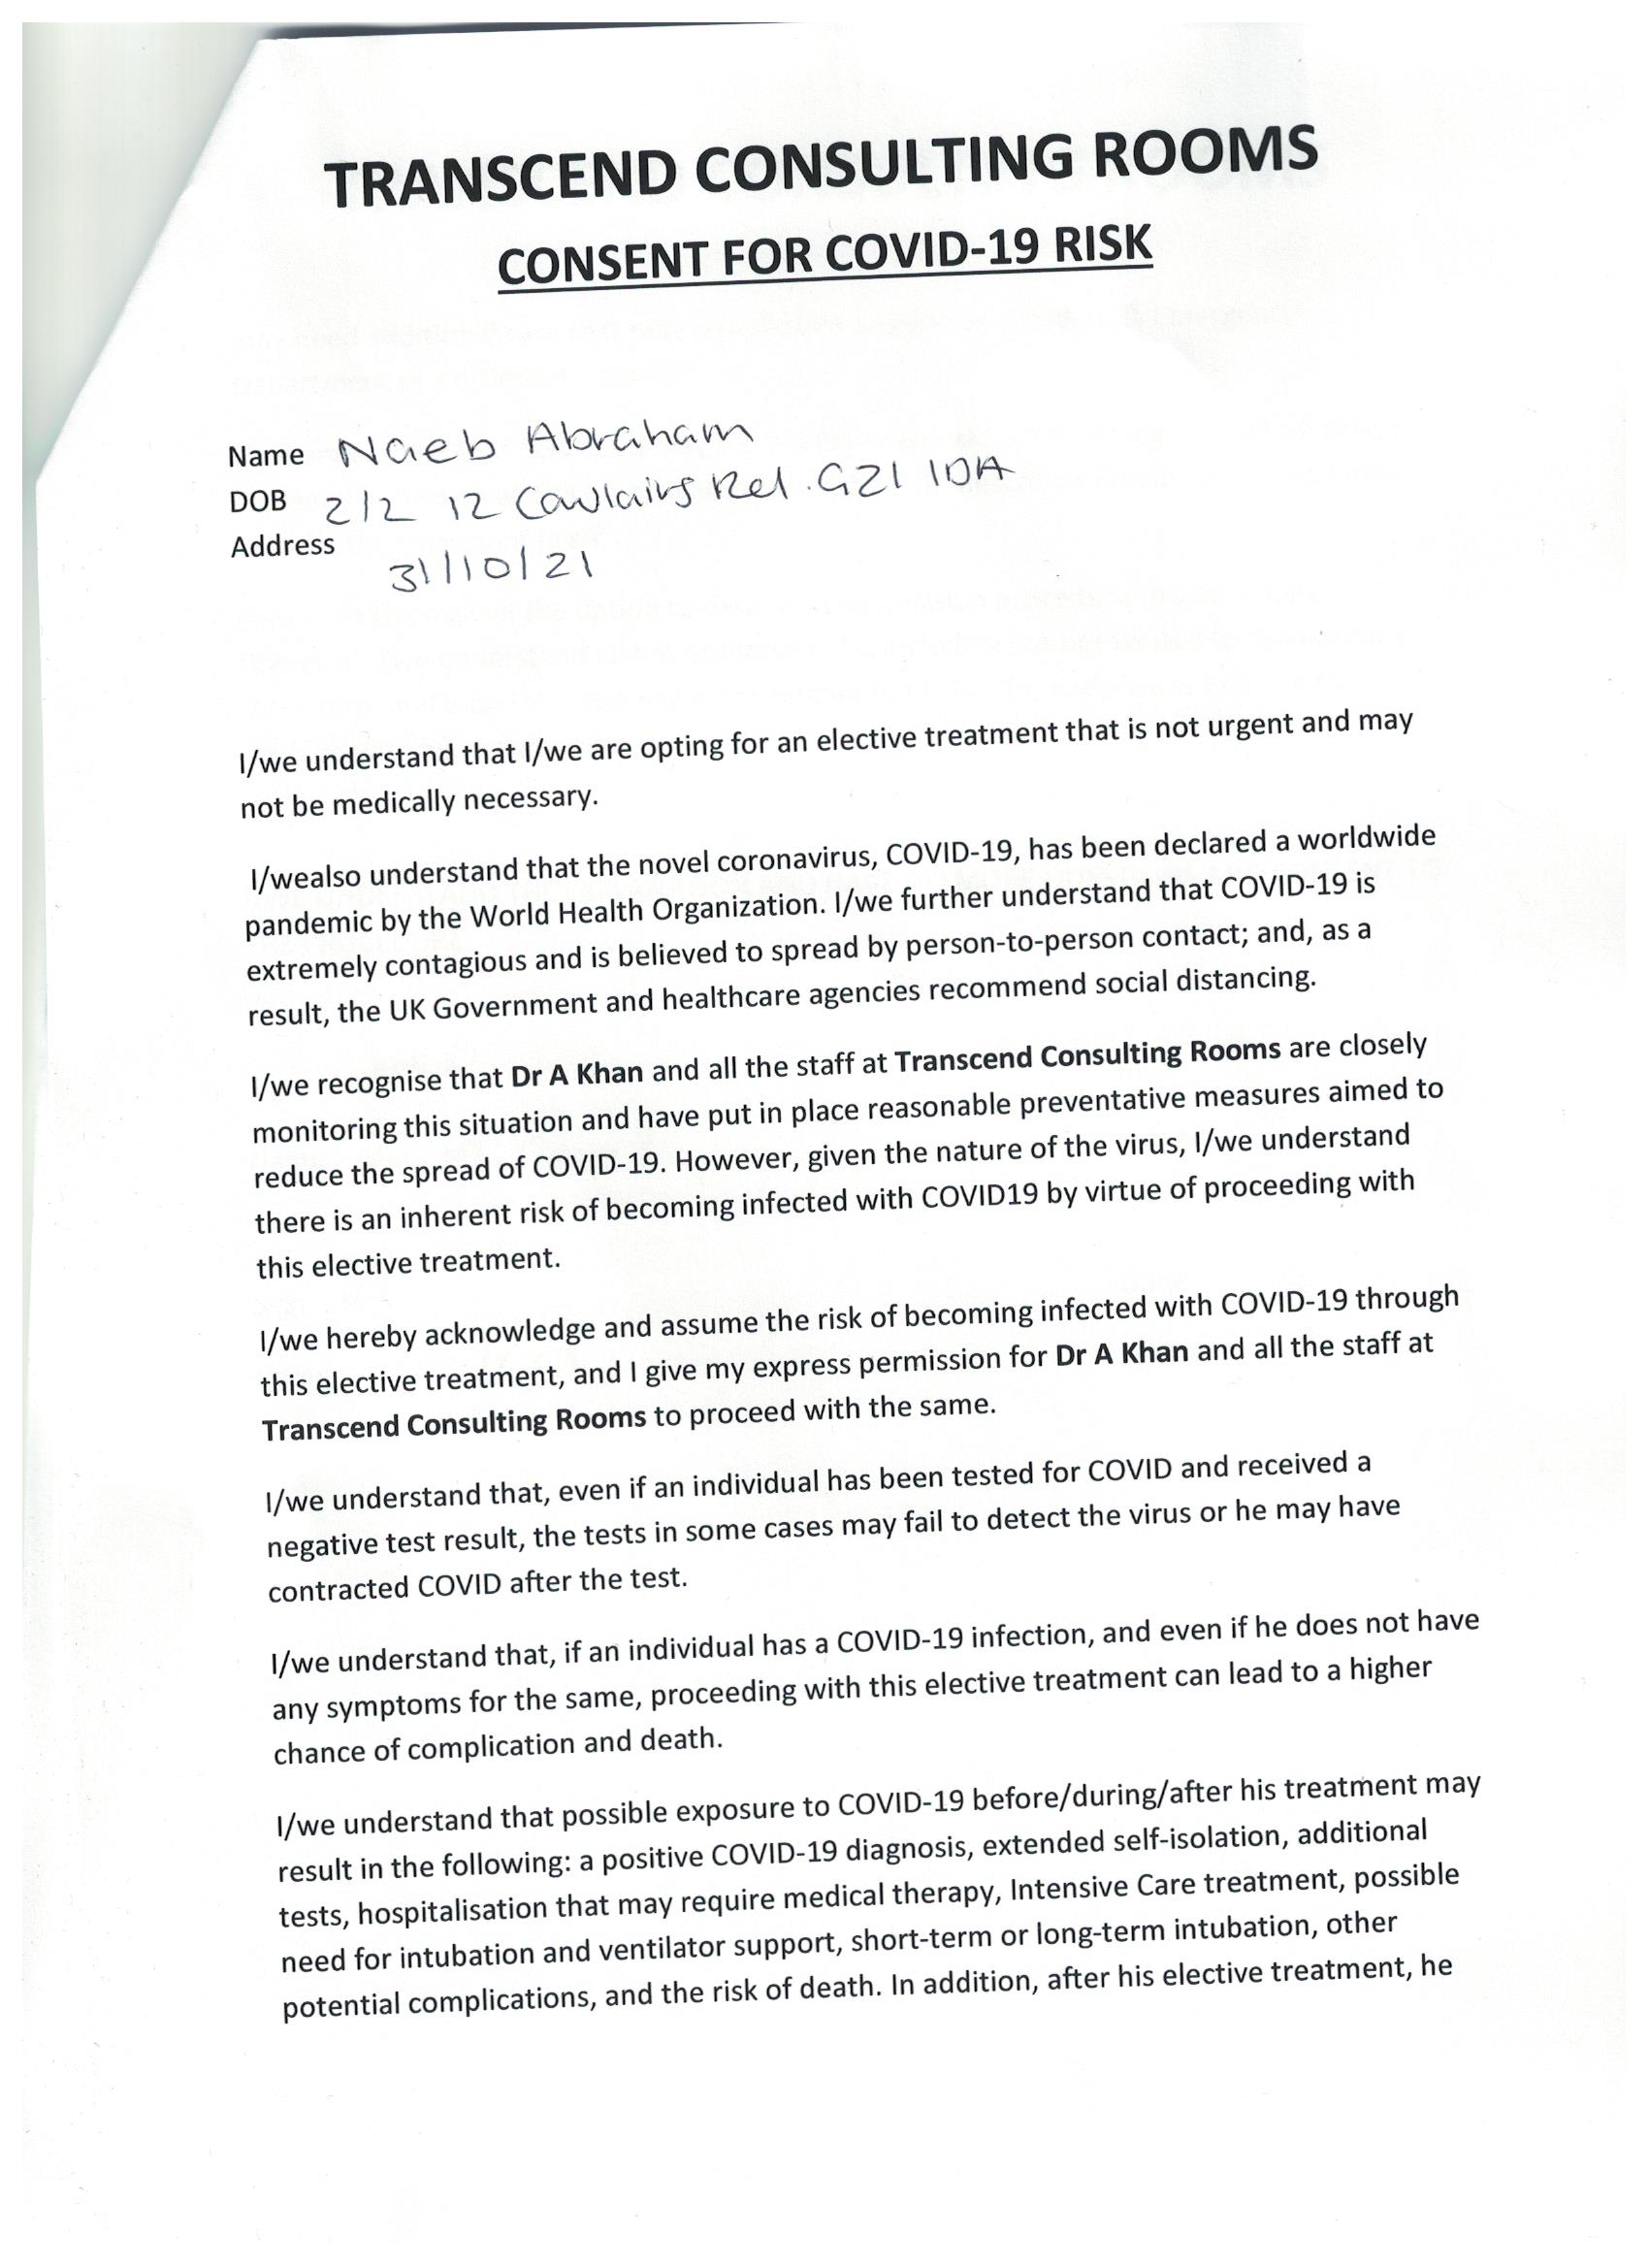 TRANSCEND CONSULTING ROOMS
CONSENT FOR COVID-19 RISK
Name Naeb Abraham
DOB 2/2 12 Cowlairs Rd. G21 1DA
Address
31/10/21
I/we understand that I/we are opting for an elective treatment that is not urgent and may
not be medically necessary.
I/wealso understand that the novel coronavirus, COVID-19, has been declared a worldwide
pandemic by the World Health Organization. I/we further understand that COVID-19 is
extremely contagious and is believed to spread by person-to-person contact; and, as a
result, the UK Government and healthcare agencies recommend social distancing.
I/we recognise that Dr A Khan and all the staff at Transcend Consulting Rooms are closely
monitoring this situation and have put in place reasonable preventative measures aimed to
reduce the spread of COVID-19. However, given the nature of the virus, I/we understand
there is an inherent risk of becoming infected with COVID19 by virtue of proceeding with
this elective treatment.
I/we hereby acknowledge and assume the risk of becoming infected with COVID-19 through
this elective treatment, and I give my express permission for Dr A Khan and all the staff at
Transcend Consulting Rooms to proceed with the same.
I/we understand that, even if an individual has been tested for COVID and received a
negative test result, the tests in some cases may fail to detect the virus or he may have
contracted COVID after the test.
I/we understand that, if an individual has a COVID-19 infection, and even if he does not have
any symptoms for the same, proceeding with this elective treatment can lead to a higher
chance of complication and death.
I/we understand that possible exposure to COVID-19 before/during/after his treatment may
result in the following: a positive COVID-19 diagnosis, extended self-isolation, additional
tests, hospitalisation that may require medical therapy, Intensive Care treatment, possible
need for intubation and ventilator support, short-term or long-term intubation, other
potential complications, and the risk of death. In addition, after his elective treatment, he